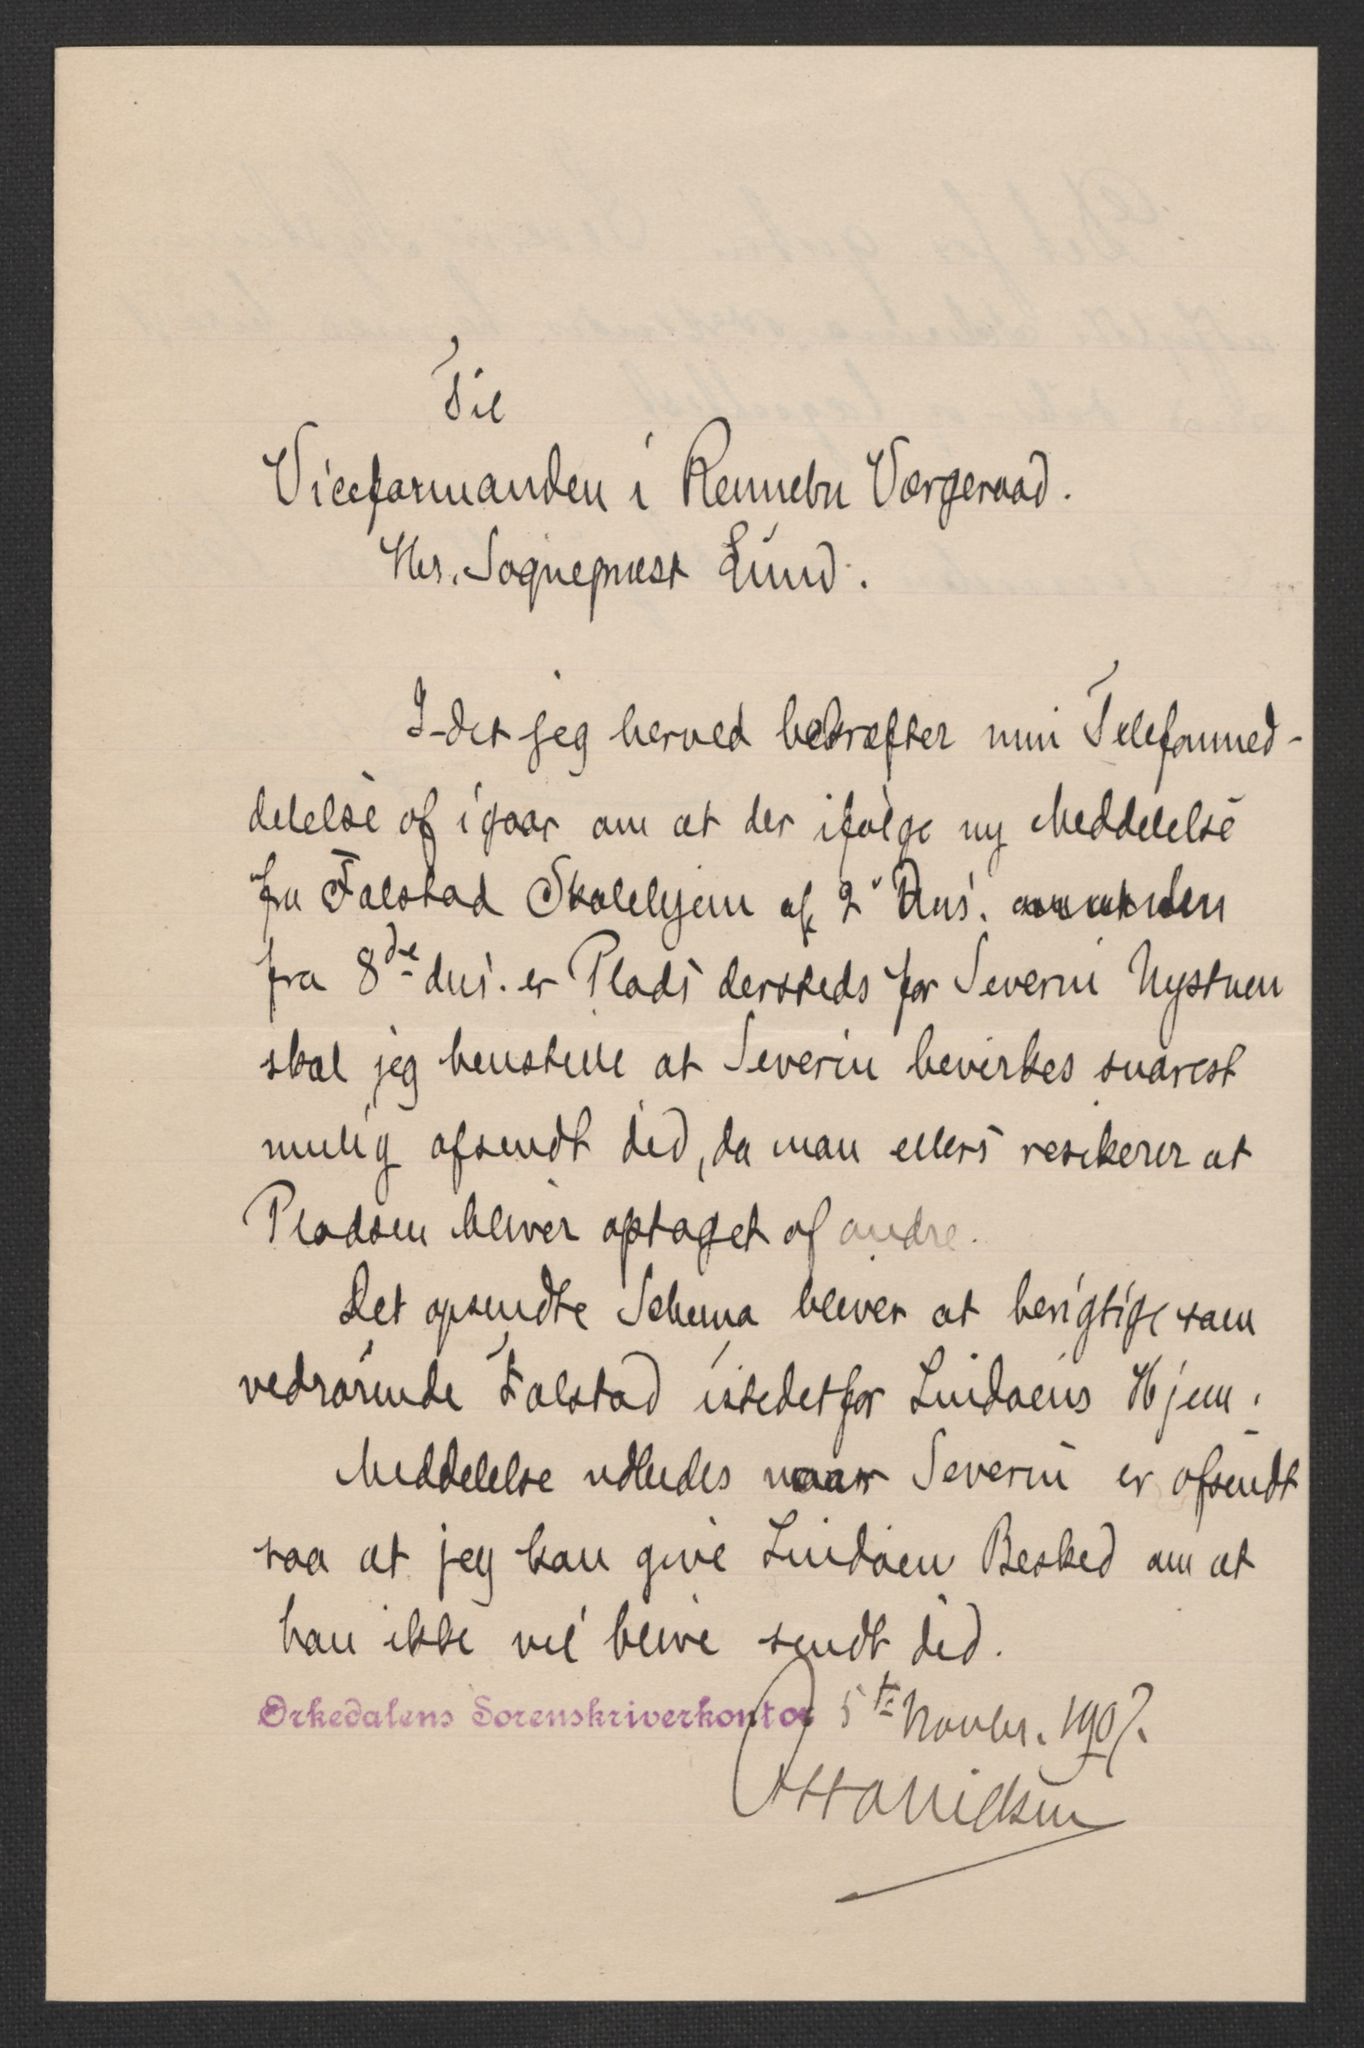 Til
Viceformanden i Rennebu Værgeraad.
Hr. Sogneprest Lund.
I det jeg herved bekræfter min Telefonmed-
delelse af igaar om at der ifølge ny Meddelelse
fra Falstad Skolehjem af 2' Dns.
fra 8de dns. er Plads dersteds for Severin Nystuen
skal jeg henstille at Severin bevirkes snarest
mulig afsendt did, da man ellers resikerer at
Pladsen bliver optaget af andre.
Det opsendte Schema bliver at berigtige som
vedrørende Falstad istedetfor Lindøens Hjem.
Meddelelse udbedes naar Severin er afsendt
saa at jeg kan give Lindøen Besked om at
han ikke vil blive sendt did.
Orkedalens Sorenskriverkontor 5te Novbr. 1907.
Otto Nielsen